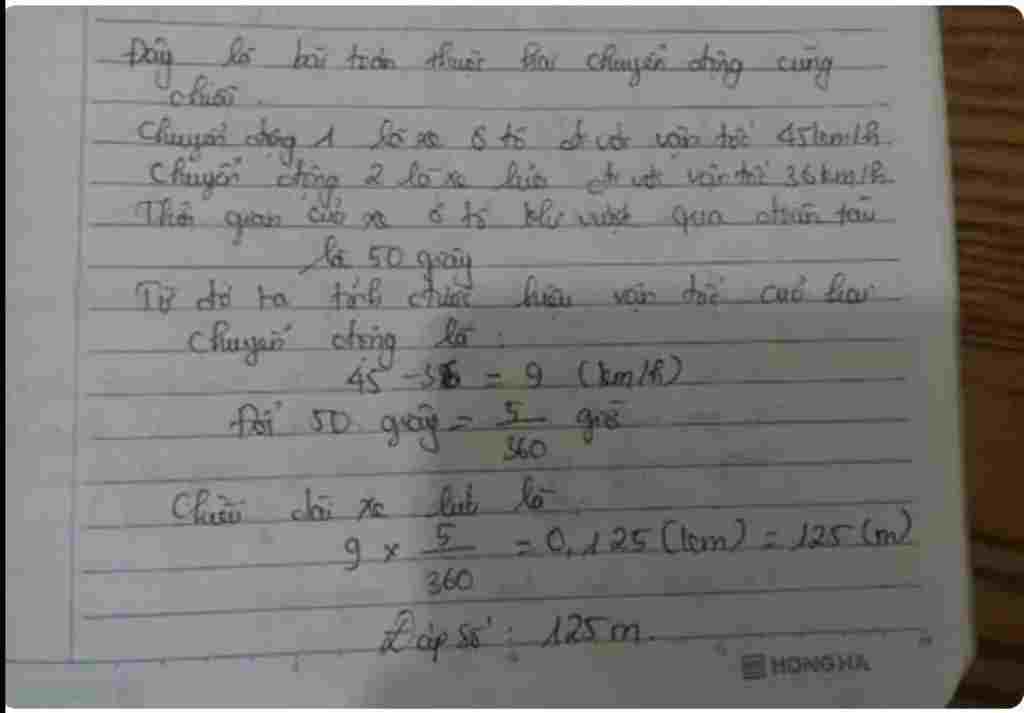 Đây là bài toán thuộc hai chuyển động cùng
chiều.
Chuyển động 1 là xe ô tô đi với vận tốc 45km/h.
Chuyển động 2 là xe lửa đi với vận tốc 36km/h.
Thời gian của xe ô tô khi vượt qua đoàn tàu
là 50 giây
Từ đó ta tính được hiệu vận tốc của hai
chuyển động là:
45 - 36 = 9 (km/h)
Đổi 50 giây = 5/360 giờ
Chiều dài xe lửa là:
9 × 5/360 = 0,125 (km) = 125 (m)
Đáp số: 125 m.
HONG HA